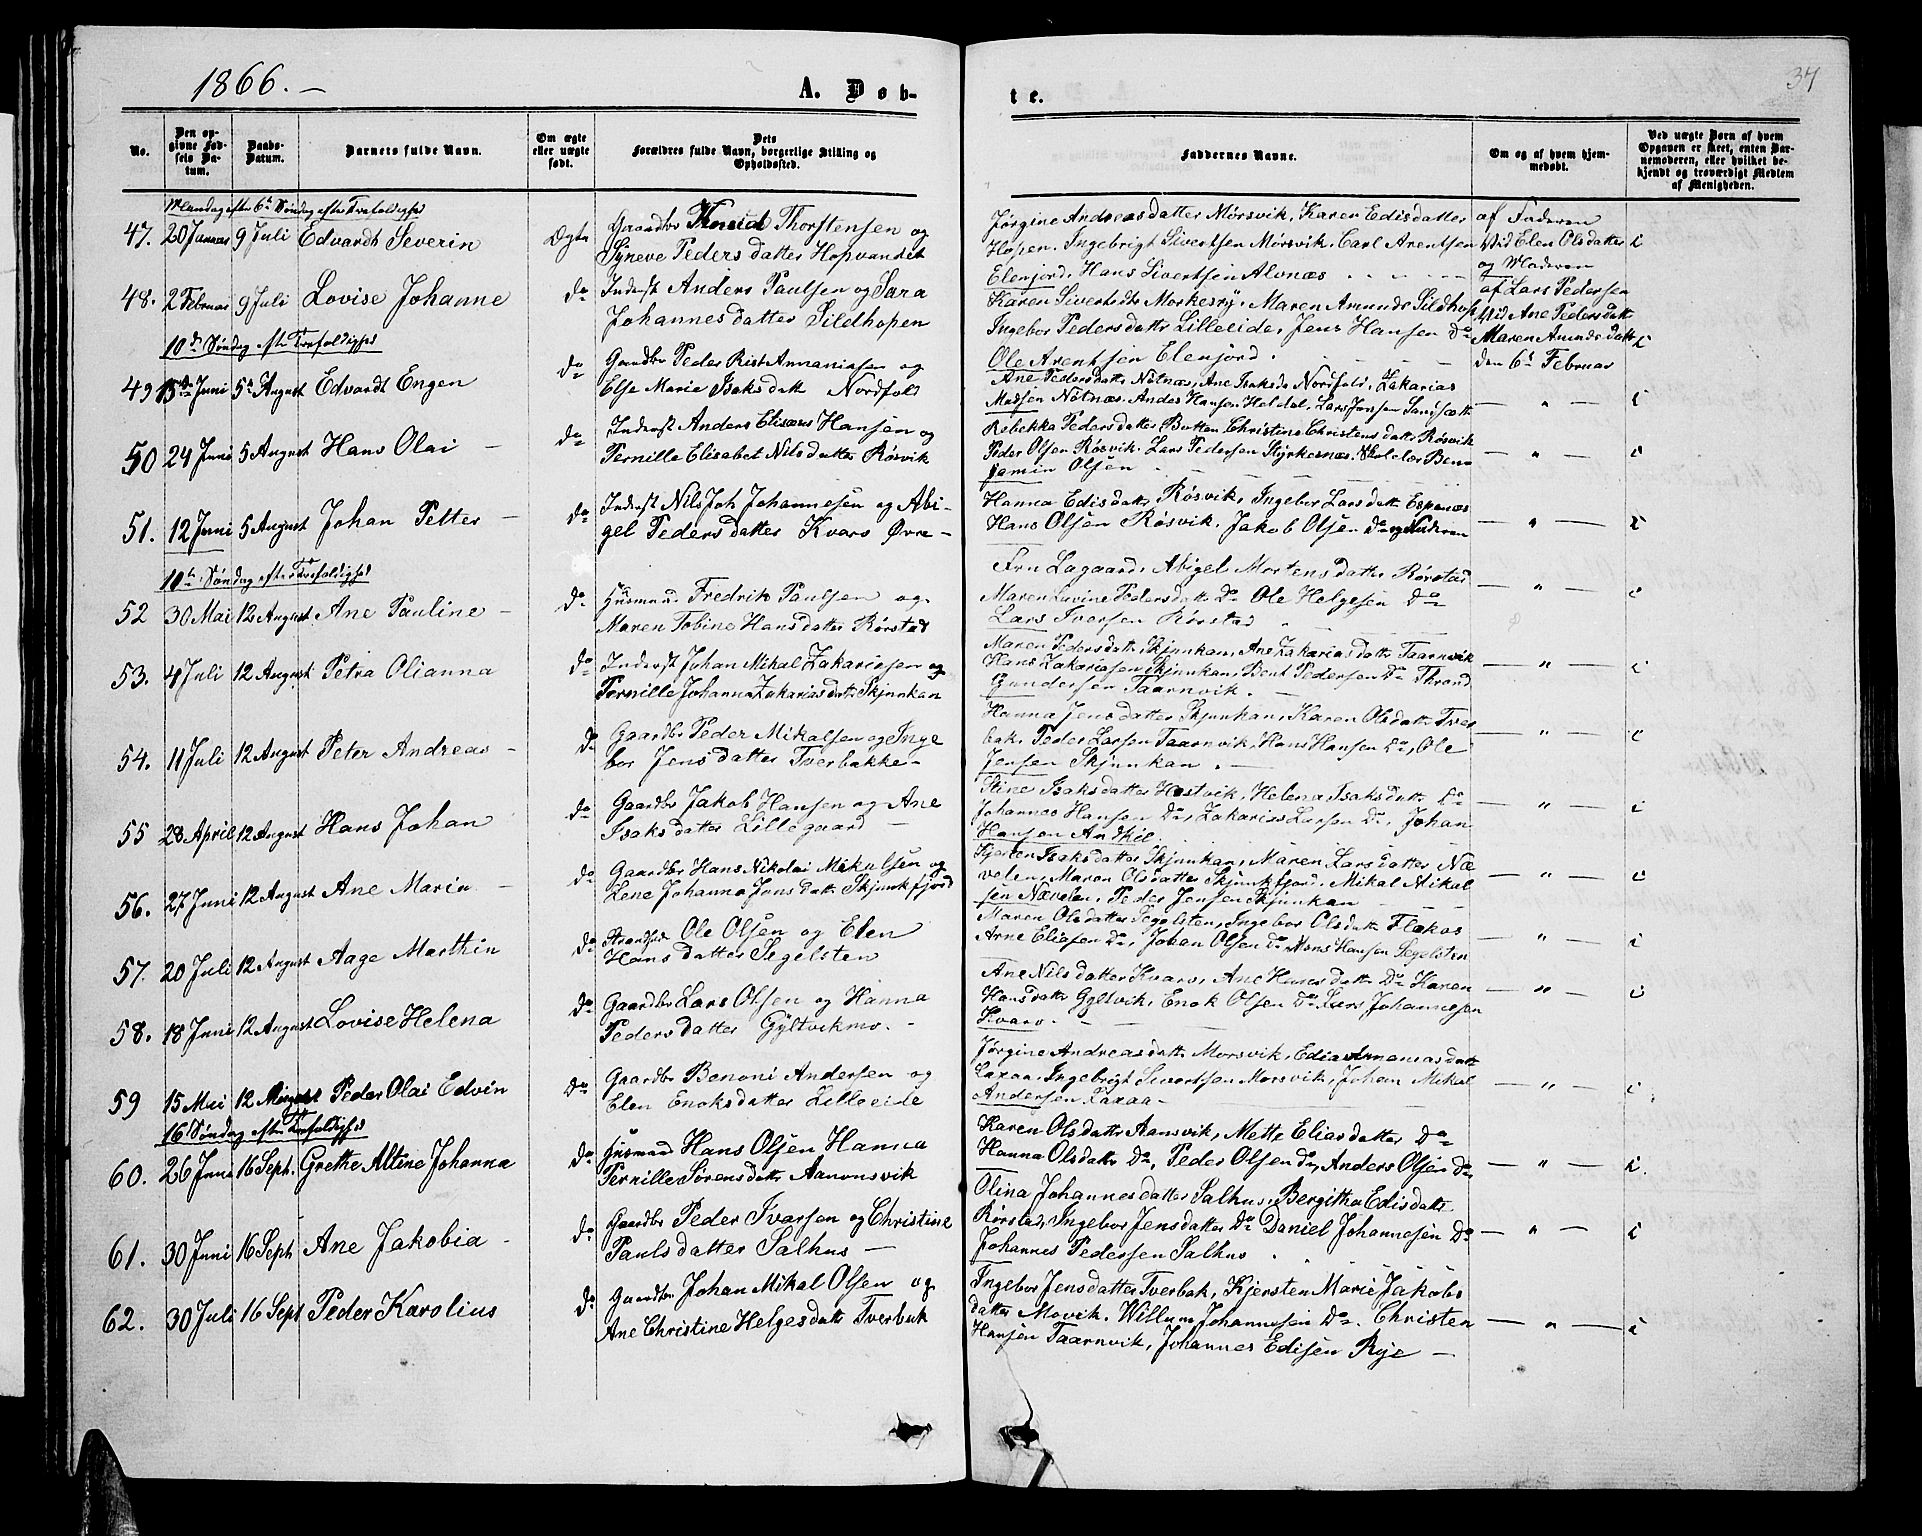 1866. —
A. Døb-
te.
37
No.
Den opgivne Fødsels Datum.
Daabs-Datum.
Barnets fulde Navn.
Om ægte eller uægte født.
Dets Forældres fulde Navn, borgerlige Stilling og Opholdssted.
Faddernes Navne.
Om og af hvem hjemmedøbt.
Ved uægte Børn af hvem Opgaven er skeet, enten Barnemoderen, eller hvilket bekjendt og troværdigt Medlem af Menigheden.
Mandag efter 6te Søndag efter Trefoldighed
47. 20 Januar 9 Juli Edvardt Severin Ægte Gaardbr Thorstensen og
Syneve Pedersdatter Hopvandet
Jørgine Andreasdatter Mørsvik, Karen Edisdatter
Hopen. Ingebrigt Sivertsen Mørsvik. Carl Arentsen
Elenjord. Hans Sivertsen Alvnæs
af Faderen
Vid Elen Olsdatter
og Moderen
48. 2 Februar 9 Juli Lovise Johanne do Inderst Anders Paulsen og Sara
Johannesdatter Sildhopen
Karen Sivertsdtr Maren Amunds Sildhop
Ingebor Pedersdattr Lilleeide, Jens Hansen Do
Ole Arentsen Elenjord.
af Lars Pedersen
Vid Ane Pedersdattr
Maren Amundsdattr
den 6te Februar
10de Søndag efter Trefoldighed
49 13de Juni 5te August Edvardt Engen do Gaardbr Peder Rist Annaniasen og
Else Marie Isaksdatt Nordfold
Ane Pedersdattr Nøtnæs, Ane Isaksdr Nordfold, Zakarias
Madsen Nøtnæs. Andes Hansen Heldal, Lars Jensen Sandsætt — " —
50 24 Juni 5 August Hans Olai — do Inderst Anders Elisæus Hansen og
Pernille Elisabet Nilsdatter Røsvik
Rebekka Pedersdatter Botten Christine Christensdattr Røsvik
Peder Olsen Røsvik. Lars Pedersen Styrkesnæs. Ben-
jamin Olsen — " —
51. 12 Juni 5 August Johan Petter — do Inderst Nils Joh Johannesen og Abi-
gel Pedersdatter Kvarv Øvre —
Hanna Edisdattr Røsvik, Ingebor Larsdattr Espenæs
Hans Olsen Røsvik. Jakob Olsen Do og Faderen — " —
Søndag efter Trefoldighed
52 30 Mai 12 August Ane Pauline — do Husmand Fredrik Paulsen og
Maren Tobine Hansdatter Rørstad
Fru Lagaard, Abigel Mortensdatter Rørstad
Maren Lovine Pedersdattr Do Ole Helgesen Do
Lars Iversen Rørstad — " —
53. 4 Juli 12 August Petra Olianna do Inderst Johan Mikal Zakariasen og
Pernille Johanna Zakariasdatt Skjunkan
Maren Pedersdattr Skjunkan, Ane Zakariasdatter Taarnvik
Hans Zakariasen Skjunkan, Bent Pedersen Do Thrond
Gundersen Taarnvik. — " —
54. 11 Juli 12 August Peter Andreas — do Gaardbr Peder Mikalsen og Inge
bor Jensdatter Tverbakke —
Hanna Jensdatter Skjunkan, Karen Olsdattr Tver
bak. Peder Larsen Taarnvik, Hans Hansen Do, Ole
Jensen Skjunkan — " —
55 28 April 12 August Hans Johan do Gaardbr Jakob Hansen og Ane
Isaksdatter Lillegaard
Stine Isaksdatter Hestvik, Helena Isaksdatt Do
Johannes Hansen Do, Zakarias Larsen Do, Johan
Hansen Andkil. — " —
56. 27 Juni 12 August Ane Maria — do Gaardbr Hans Nikolai Mikalsen og
Lene Johanna Jonsdatt Skjunkfjord
Kjersten Isaksdatter Skjunkan, Maren Larsdatter Næ
velen, Maren Olsdatter Skjunkfjord. Mikal Mikal
sen Nævelen. Peder Jensen Skjunkan — " —
57. 20 Juli 12 August Aage Marthin do Strandsid Ole Olsen og Elen
Hansdatter Segelsten
Maren Olsdatter Segelsten, Ingebor Olsdatt Flakas
Arne Eliasen Do, Johan Olsen Do Mons Hansen Segelsten — " —
58. 18 Juni 12 August Lovise Helena do Gaardbr Lars Olsen og Hanna
Pedersdatter Gyltvikmo. —
Ane Nilsdatter Kvarv, Ane Hansdattr Do Karen
Hansdattr Gyltvik, Enok Olsen Do Lars Johannesen
Kvarv. — " —
59 15 Mai 12 August Peder Olai Edvin do Gaardbr Benoni Andersen og
Elen Enoksdatter Lilleeide
Jørgine Andreasdattr Morsvik, Edia Annaniasdatt
Laxaa, Ingebrigt Sivertsen Morsvik, Johan Mikal
Andersen Laxaa — — " —
16 Søndag efter Trefoldighed
60. 26 Juni 16 Sept. Grethe Altine Johanna do Husmand Hans Olsen Hanna
Pernille Sørensdattr Aanonsvik
Karen Olsdatter Aansvik, Mette Eliasdatter Do
Hanna Olsdattr Do, Peder Olsen Do, Anders Olsen Do — " —
61. 30 Juni 16 Sept Ane Jakobia — do Gaardbr Peder Ivarsen og Christine
Paulsdatter Salhus —
Olina Johannesdatter Salhus, Bergitha Edisdattr
Rørstad, Ingebor Jensdatter Do Daniel Johannesen Do
Johannes Pedersen Salhus — " —
62. 30 Juli 16 Sept Peder Karolius do Gaardbr Johan Mikal Olsen og
Ane Christine Helgesdatt Tverbak
Ingebor Jensdatter Tverbak, Kjersten Marie Jakobs
datter Movik. Willum Johannesen Do. Christen
Hansen Taarnvik, Johannes Edisen Rye — — " —